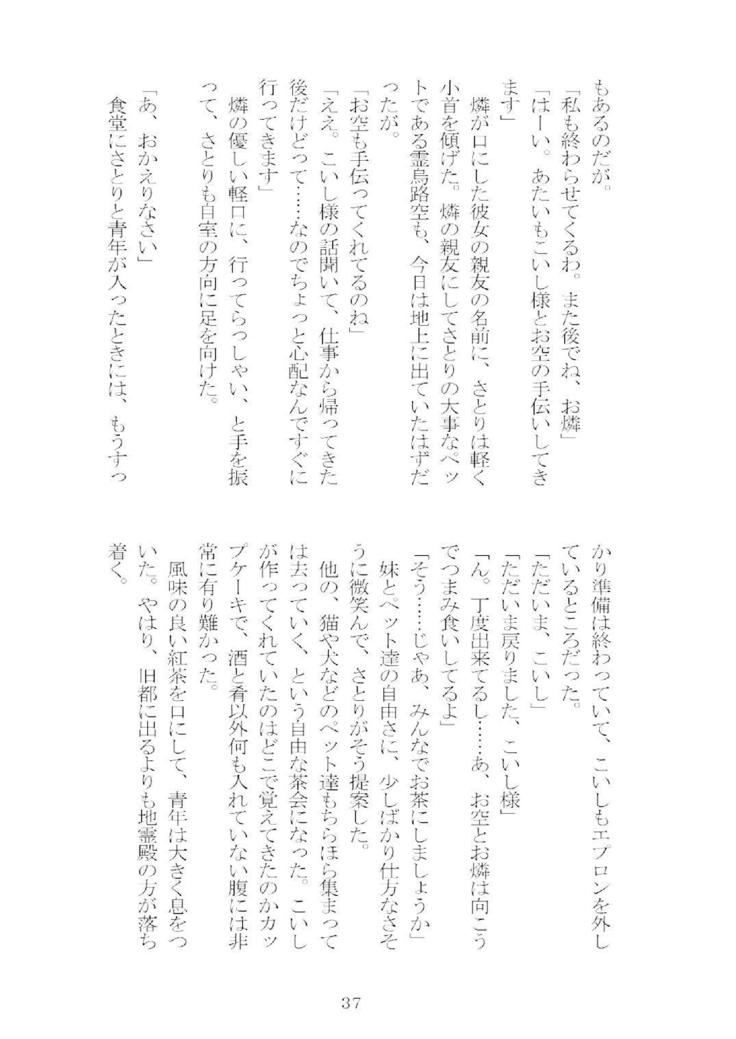 もあるのだが。
「私も終わらせてくるわ。また後でね、お燐」
「はーい。あたいもこいし様とお空の手伝いしてき
ます」
　燐が口にした彼女の親友の名前に、さとりは軽く
小首を傾げた。燐の親友にしてさとりの大事なペッ
トである霊烏路空も、今日は地上に出ていたはずだ
ったが。
「お空も手伝ってくれてるのね」
「ええ。こいし様の話聞いて、仕事から帰ってきた
後だけどって……なのでちょっと心配なんですぐに
行ってきます」
　燐の優しい軽口に、行ってらっしゃい、と手を振
って、さとりも自室の方向に足を向けた。
「あ、おかえりなさい」
　食堂にさとりと青年が入ったときには、もうすっ
かり準備は終わっていて、こいしもエプロンを外し
ているところだった。
「ただいま、こいし」
「ただいま戻りました、こいし様」
「ん。丁度出来てるし……あ、お空とお燐は向こう
でつまみ食いしてるよ」
「そう……じゃあ、みんなでお茶にしましょうか」
　妹とペット達の自由さに、少しばかり仕方なさそ
うに微笑んで、さとりがそう提案した。
　他の、猫や犬などのペット達もちらほら集まって
は去っていく、という自由な茶会になった。こいし
が作ってくれていたのはどこで覚えてきたのかカッ
プケーキで、酒と肴以外何も入れていない腹には非
常に有り難かった。
　風味の良い紅茶を口にして、青年は大きく息をつ
いた。やはり、旧都に出るよりも地霊殿の方が落ち
着く。
37